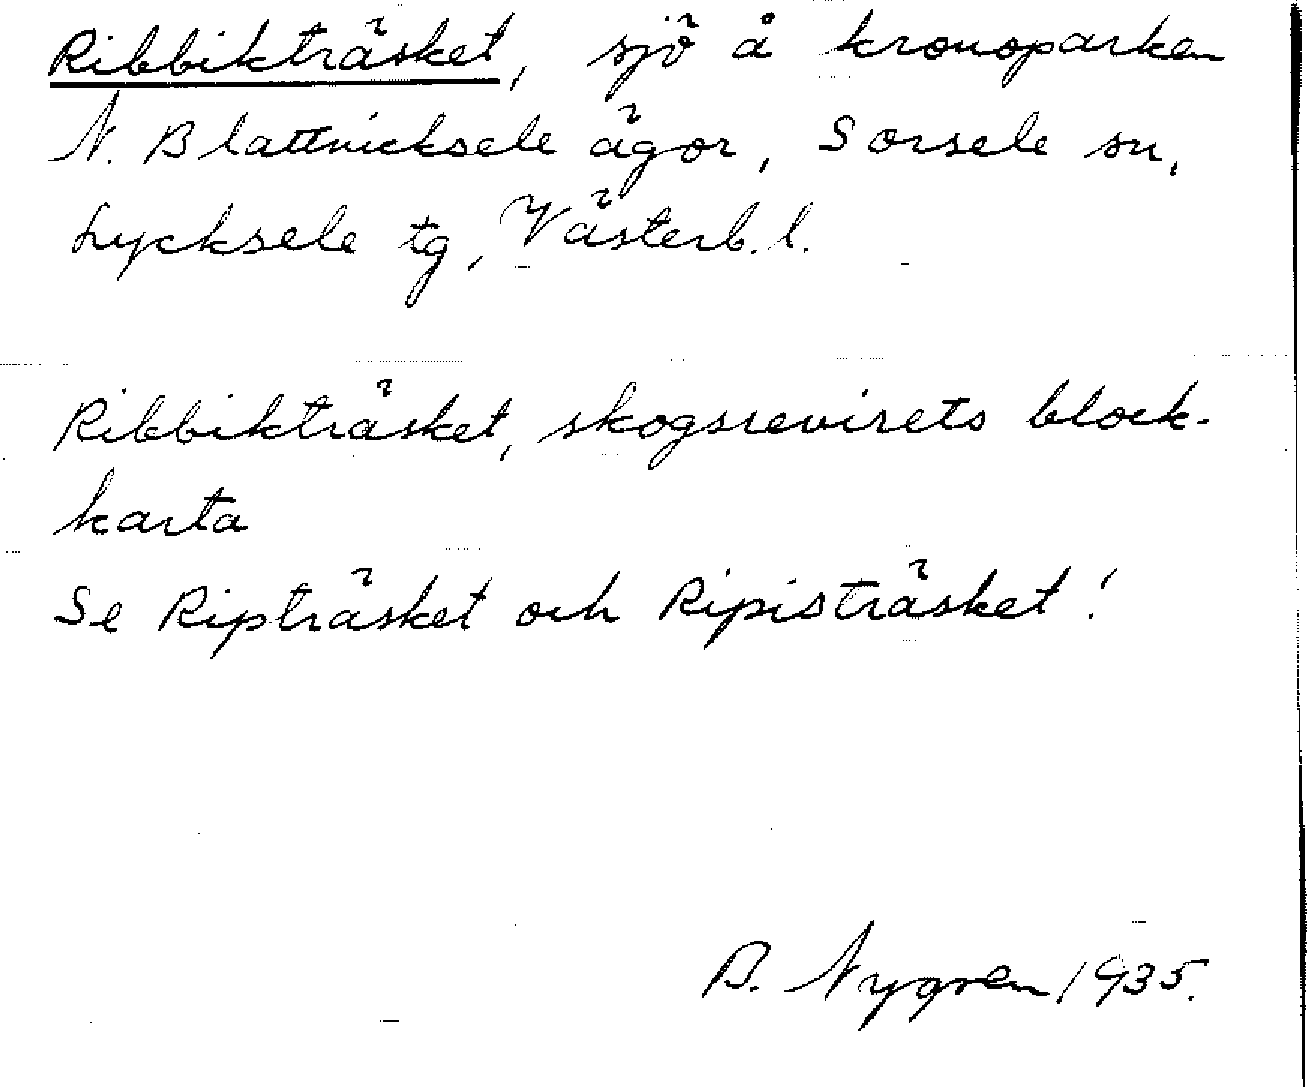 Ribbikträsket, sjö å kronoparken
N. Blattnicksele ägor, Sorsele sn,
Lycksele tg, Västerb. l.
Ribbikträsket, skogsrevirets block-
karta
Se Ripträsket och Ripisträsket!
B. Nygren 1935.